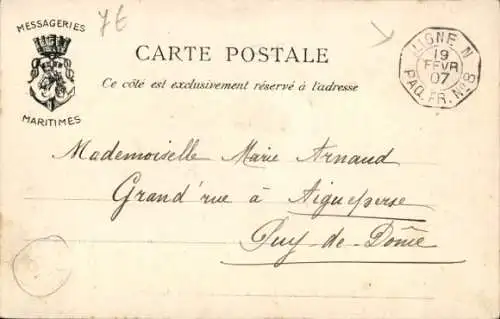 7€
MESSAGERIES
MARITIMES
CARTE POSTALE
Ce côté est exclusivement réservé à l'adresse
LIGNE N
19
FEVR
07
PAQ. FR. Nº 8
Mademoiselle Marie Arnaud
Grand'rue à Aigueperse
Puy-de-Dôme